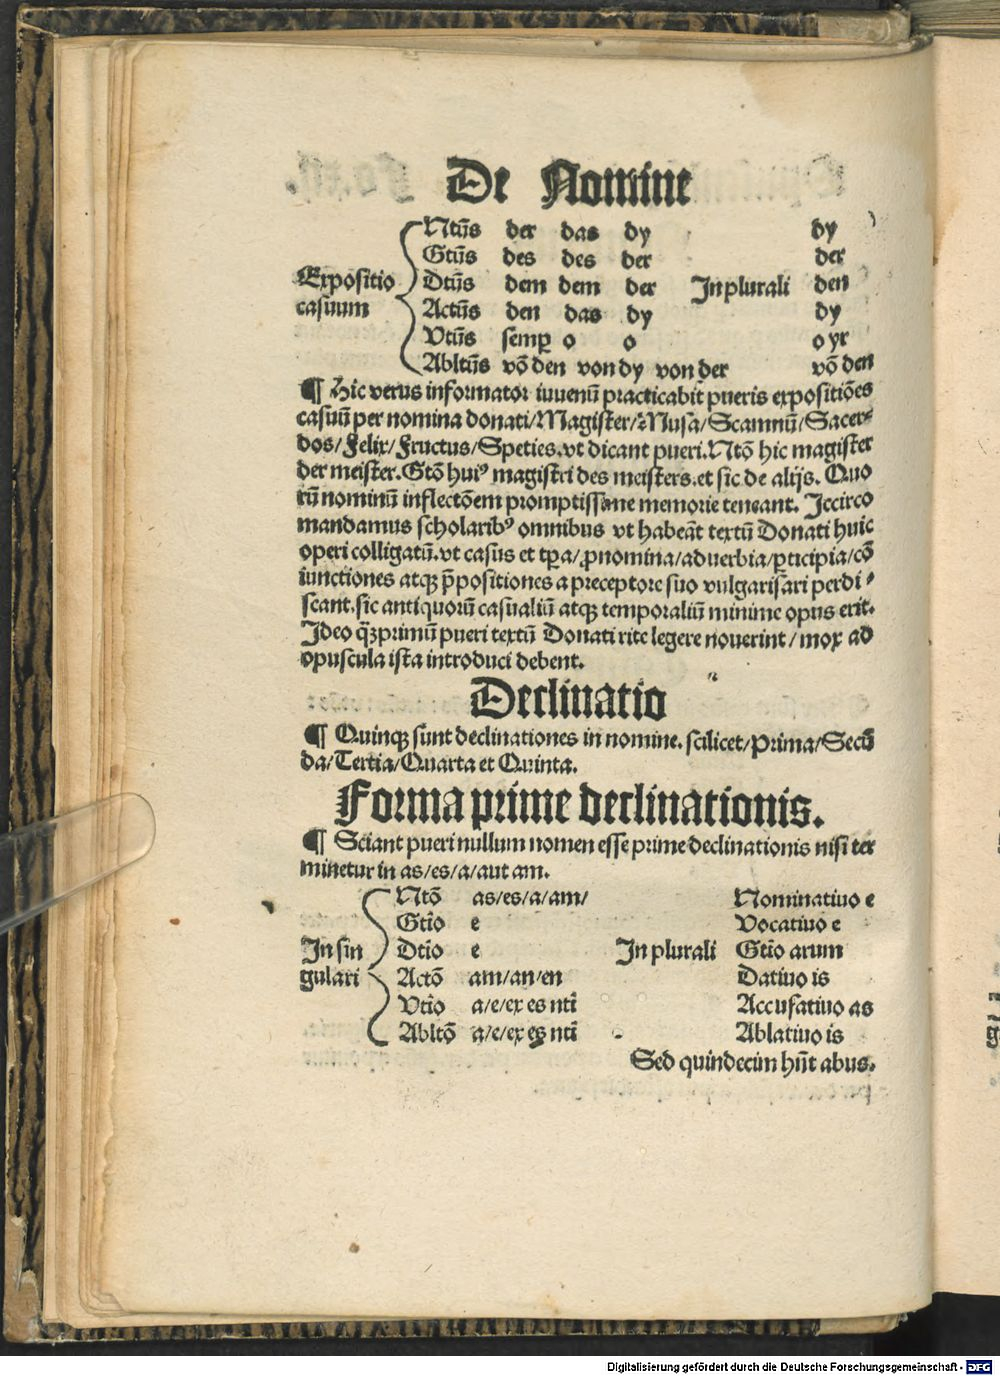 De Nomine
Ntūs der das dy dy
Gtūs des des der der
Expositio Dtūs dem dem der In plurali den
casuum Actūs den das dy dy
Vtūs semꝑ o o o yr
Abltūs võ den von dy von der võ den
¶ Hic verus informator iuuenū practicabit pueris expositiões
casuū per nomina donati/Magister/Musa/Scamnū/Sacer⸗
dos/Felix/Fructus/Speties.vt dicant pueri.Ntõ hic magister
der meister.Gtõ huiꝰ magistri des meisters.et sic de alijs. Quo
rū nominū inflectõem promptissime memorie teneant. Iccirco
mandamus scholaribꝰ omnibus vt habeāt textū Donati huic
operi colligatū.vt casus et tꝑa/ ꝓnomina/aduerbia/ꝑticipia/cõ
iunctiones atqꝫ p̄positiones a preceptore suo vulgarisari perdi⸗
scant.sic antiquorū casualiū atqꝫ temporaliū minime opus erit.
Ideo qꝫ̄primū pueri textū Donati rite legere nouerint/ mox ad
opuscula ista introduci debent.
Declinatio
¶ Quinqꝫ sunt declinationes in nomine. scilicet/Prima/Secū
da/Tertia/Quarta et Quinta.
Forma prime declinationis.
¶ Sciant pueri nullum nomen esse prime declinationis nisi ter
minetur in as/es/a/aut am.
Ntõ as/es/a/am/ Nominatiuo e
Gtīo e Vocatiuo e
In sin Dtīo e In plurali Gtīo arum
gulari Actõ am/an/en Datiuo is
Vtīo a/e/ex es ntī Accusatiuo as
Abltõ a/e/ex es ntī Ablatiuo is
Sed quindecim hn̄t abus.
Digitalisierung gefördert durch die Deutsche Forschungsgemeinschaft - DFG